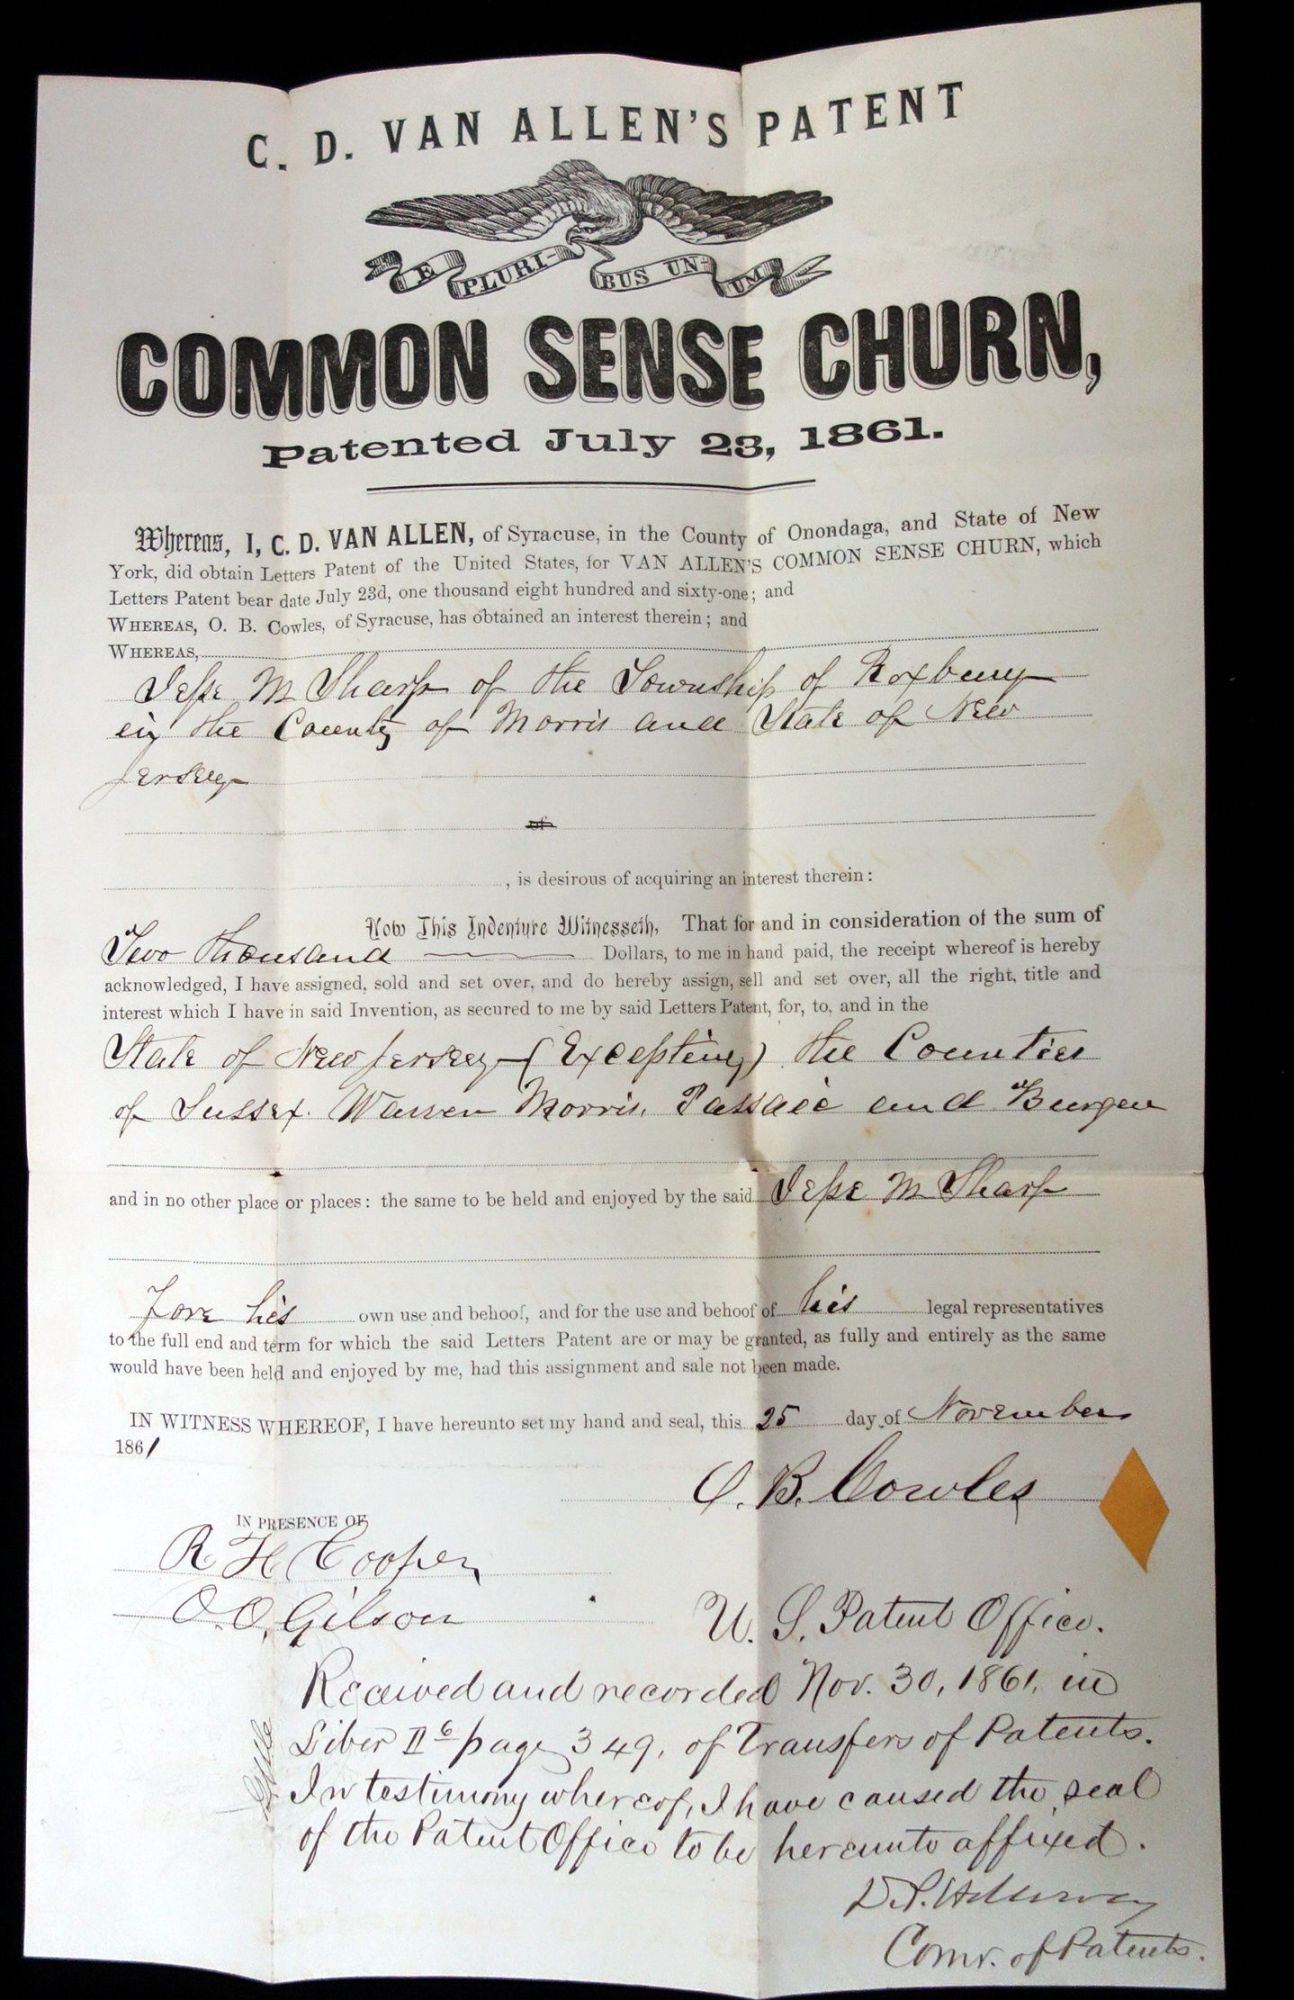 C. D. VAN ALLEN'S PATENT
E PLURI- BUS UN- UM
COMMON SENSE CHURN,
Patented July 23, 1861.
Whereas, I, C. D. VAN ALLEN, of Syracuse, in the County of Onondaga, and State of New
York, did obtain Letters Patent of the United States, for VAN ALLEN'S COMMON SENSE CHURN, which
Letters Patent bear date July 23d, one thousand eight hundred and sixty-one; and
WHEREAS, O. B. Cowles, of Syracuse, has obtained an interest therein; and
WHEREAS,
Jesse M Sharp of the Township of Roxbury
in the County of Morris and State of New
Jersey
of
, is desirous of acquiring an interest therein:
Now This Indenture Witnesseth, That for and in consideration of the sum of
Two thousand Dollars, to me in hand paid, the receipt whereof is hereby
acknowledged, I have assigned, sold and set over, and do hereby assign, sell and set over, all the right, title and
interest which I have in said Invention, as secured to me by said Letters Patent, for, to, and in the
State of New Jersey (Excepting) the Counties
of Sussex. Warren Morris, Passaic and Burgen
and in no other place or places: the same to be held and enjoyed by the said Jesse M Sharp
Fore his own use and behoof, and for the use and behoof of his legal representatives
to the full end and term for which the said Letters Patent are or may be granted, as fully and entirely as the same
would have been held and enjoyed by me, had this assignment and sale not been made.
IN WITNESS WHEREOF, I have hereunto set my hand and seal, this 25 day of November
1861
O. B. Cowles
IN PRESENCE OF
R H Cooper
O. O. Gilson
U. S. Patent Office.
Received and recorded Nov. 30, 1861, in
Liber II 6 page 349, of Transfers of Patents.
In testimony whereof, I have caused the seal
of the Patent Office to be hereunto affixed.
D. P. Holloway
Comr. of Patents.